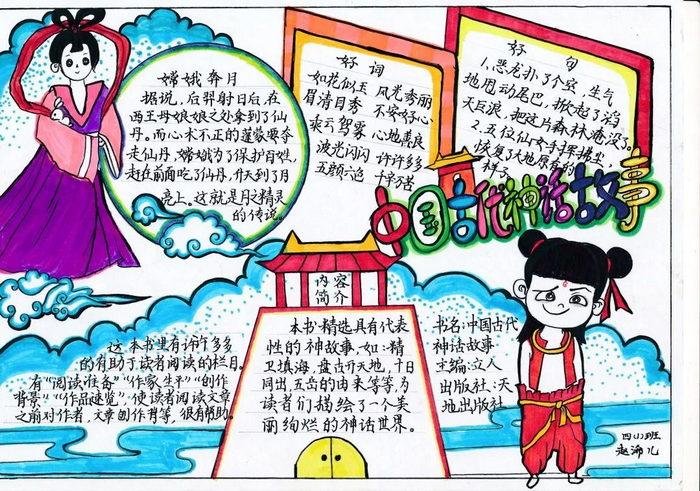 嫦娥奔月
据说，后羿射日后，在
西王母娘娘之处拿到了仙
丹。而心术不正的蓬蒙要夺
走仙丹，嫦娥为了保护百姓，
赶在前面吃了仙丹，升天到了月
亮上。这就是月之精灵
的传说。
好词
如花似玉 风光秀丽
眉清目秀 不安好心
乘云驾雾 心地善良
波光闪闪 许许多多
五颜六色 千辛万苦
好句
1.恶龙扑了个空，生气
地甩动尾巴，掀起了滔
天巨浪，把这片森林淹没了。
2.五位仙女手挥拂尘，
恢复了大地原有的
样子
中国古代神话故事
内容
简介
这本书里有许许多多
的有助于读者阅读的栏目。
有“阅读准备”“作家生平”“创作
背景”“作品速览”，使读者阅读文章
之前对作者，文章创作背等，很有帮助。
本书精选具有代表
性的神故事，如：精
卫填海，盘古开天地，十日
同出，五岳的由来等等，为
读者们描绘了一个美
丽绚烂的神话世界。
书名：中国古代
神话故事
主编：立人
出版社：天
地出版社
四（1）班
赵